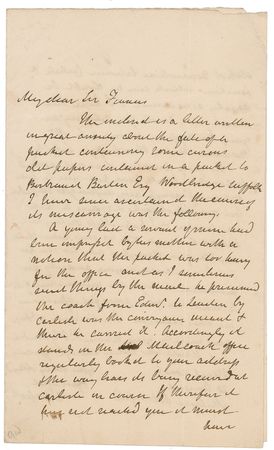 My dear Sir Francis
The inclosed is a letter written
in great anxiety about the fate of a
packet containing some curious
old papers contained in a packet to
Bertrand Barton Esq Woodbridge Suffolk
I have since ascertained the cause of
its miscarriage was the following
A young lad a servant of mine had
been imprest by his mother with a
notion that the packet was too heavy
for the office and as I sometimes
send things by the mail he presumed
the coach from Edinr. to London by
Carlisle was the conveyance meant &
there he carried it. Accordingly it
stands in the Mail coach office
regularly booked to your address
& the way bears its being received at
Carlisle in course If therefore it
has not reached you it must
have